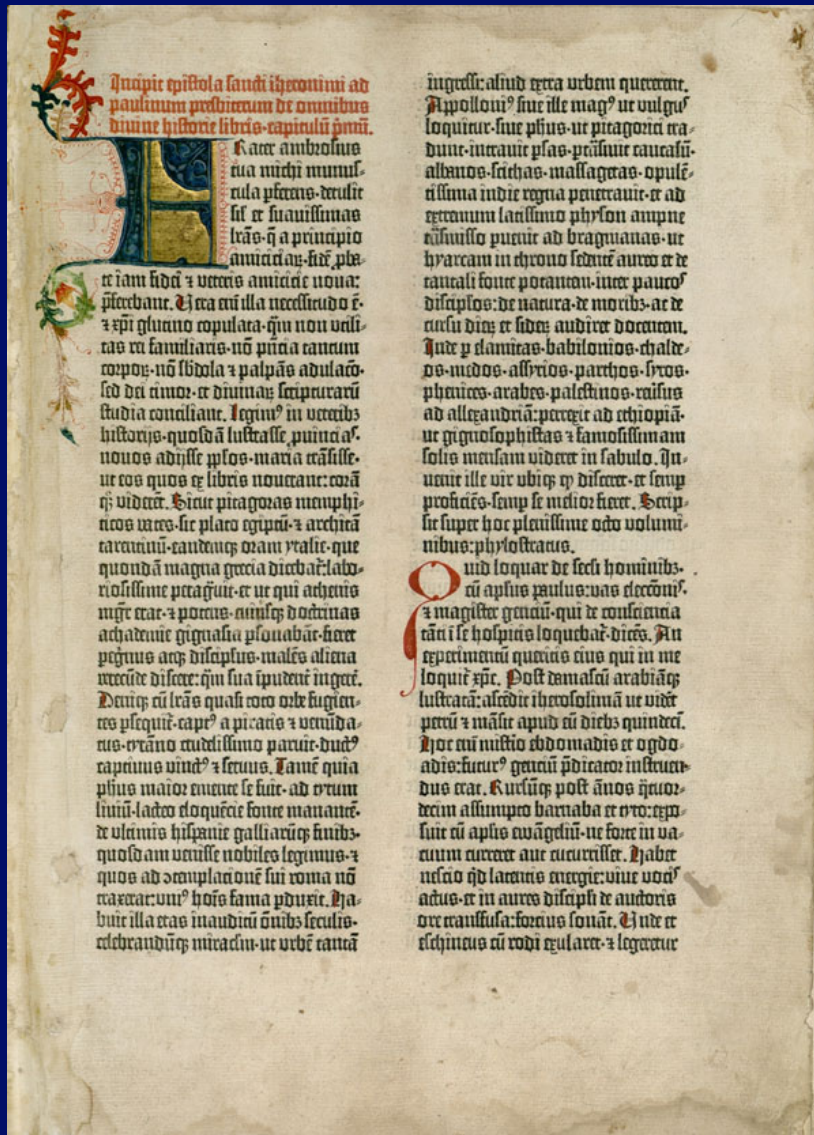 Incipit epistola sancti iheronimi ad
paulinum presbiterum de omnibus
divine historie libris·capitulū p̄mū.
Frater ambrosius
tua michi munus-
cula pferens·detulit
sił et suavissimas
lrās·q̄ a principio
amiciciaꝝ·fidē pba-
te iam fidei ⁊ veteris amicicie nova:
pferebant. Vera eni illa necessitudo ē·
⁊ xp̄i glutino copulata·q̄m non utili-
tas rei familiaris·nō pn̄cia tantum
corpoꝝ·nō sbdola ⁊ palpās adulacō·
sed dei timor·et divinaꝝ scripturarū
studia conciliant. Legimꝰ in veteribꝫ
historijs·quosdā lustrasse puinciaſ·
novos adijsse pplos·maria trāsisse·
ut eos quos ex libris noverant: corā
qꝫ viderēt. Sicut pitagoras memphi-
ticos vates·sic plato egiptū·⁊ architā
tarentinū·eandemqꝫ oram ytalie·que
quondā magna grecia dicebat̄: labo-
riosissime peragvit·et ut qui athenis
mgr̄ erat·⁊ potens·cuiusqꝫ doctrinas
achademie gignasia psonabāt·fieret
pegrinus atqꝫ discipłus·malēs aliena
verecūde discere: q̄m sua īpudent̄ ingere.
Deniqꝫ cū lrās quasi toto orbe fugien-
tes psequit̄·captꝰ a piratis ⁊ venūda-
tus·tyrāno crudelissimo paruit·ductꝰ
captivus vinctꝰ ⁊ servus. Tamē quia
phus maior emente se fuit·ad tytum
livium·lacteo eloquēcie fonte manantē·
de ultimis hispanie galliarūqꝫ finibꝫ·
quosdam venisse nobiles legimus·⁊
quos ad ↄtemplationē sui roma nō
traxerat: uniꝰ hoīs fama pduxit. Ha-
buit illa etas inauditū ōnibꝫ seculis·
celebrandūqꝫ miraclm·ut urbē tantā
ingressi: aliud extra urbem quererent.
Appolloniꝰ sive ille magꝰ ut vulguſ
loquitur·sive phus·ut pitagorici tra-
dunt·intravit psas·ptrāsivit caucasū·
albanos·scithas·massagetas·opulē-
tissima indie regna penetravit·et ad
extremum latissimo physon ampne
trāsmisso puenit ad bragmanas·ut
hyarcam in throno sedentē aureo et de
tantali fonte potantem·inter paucoſ
discipłos: de natura·de moribꝫ·ac de
cursu dieꝝ et sideꝝ audiret docentem.
Inde p elamitas·babilonios·chalde-
os·medos·assyrios·parthos·syros·
phenices·arabes·palestinos·reūsus
ad allexandriā: perexit ad ethiopiā·
ut gignosophistas ⁊ famosissimam
solis mensam videret in sabulo. In-
venit ille vir ubiqꝫ qꝫ disceret·et semp
proficiēs·semp se melior fieret. Scrip-
sit super hoc plenissime octo volumi-
nibus: phylostratus.
Quid loquar de secli hominibꝫ·
cū apłus paulus: vas eleccōniſ·
⁊ magister gentiū·qui de consciencia
tāti ī se hospitis loquebat̄·dicēs. An
experimentū queritis eius qui in me
loquit̄ xp̄c. Post damascū arabiāqꝫ
lustratā: ascēdit iherosolimā ut vidēt
petrū ⁊ māsit apud eū diebꝫ quindeci.
Hoc eni mistio ebdomadis et ogdo-
adis: futurꝰ gentiū p̄dicator instruen-
dus erat. Rursūqꝫ post ānos q̄tuor-
decim assumpto barnaba et tyto: expo-
suit cū apłis ewāgeliū·ne forte in va-
cuum curreret aut cucurrisset. Habet
nescio q̄d latentis energie: vive vociſ
actus·et in aures discipłi de auctoris
ore transfusa: fortius sonāt. Unde et
eschineus cū rodi exularet·⁊ legeretur